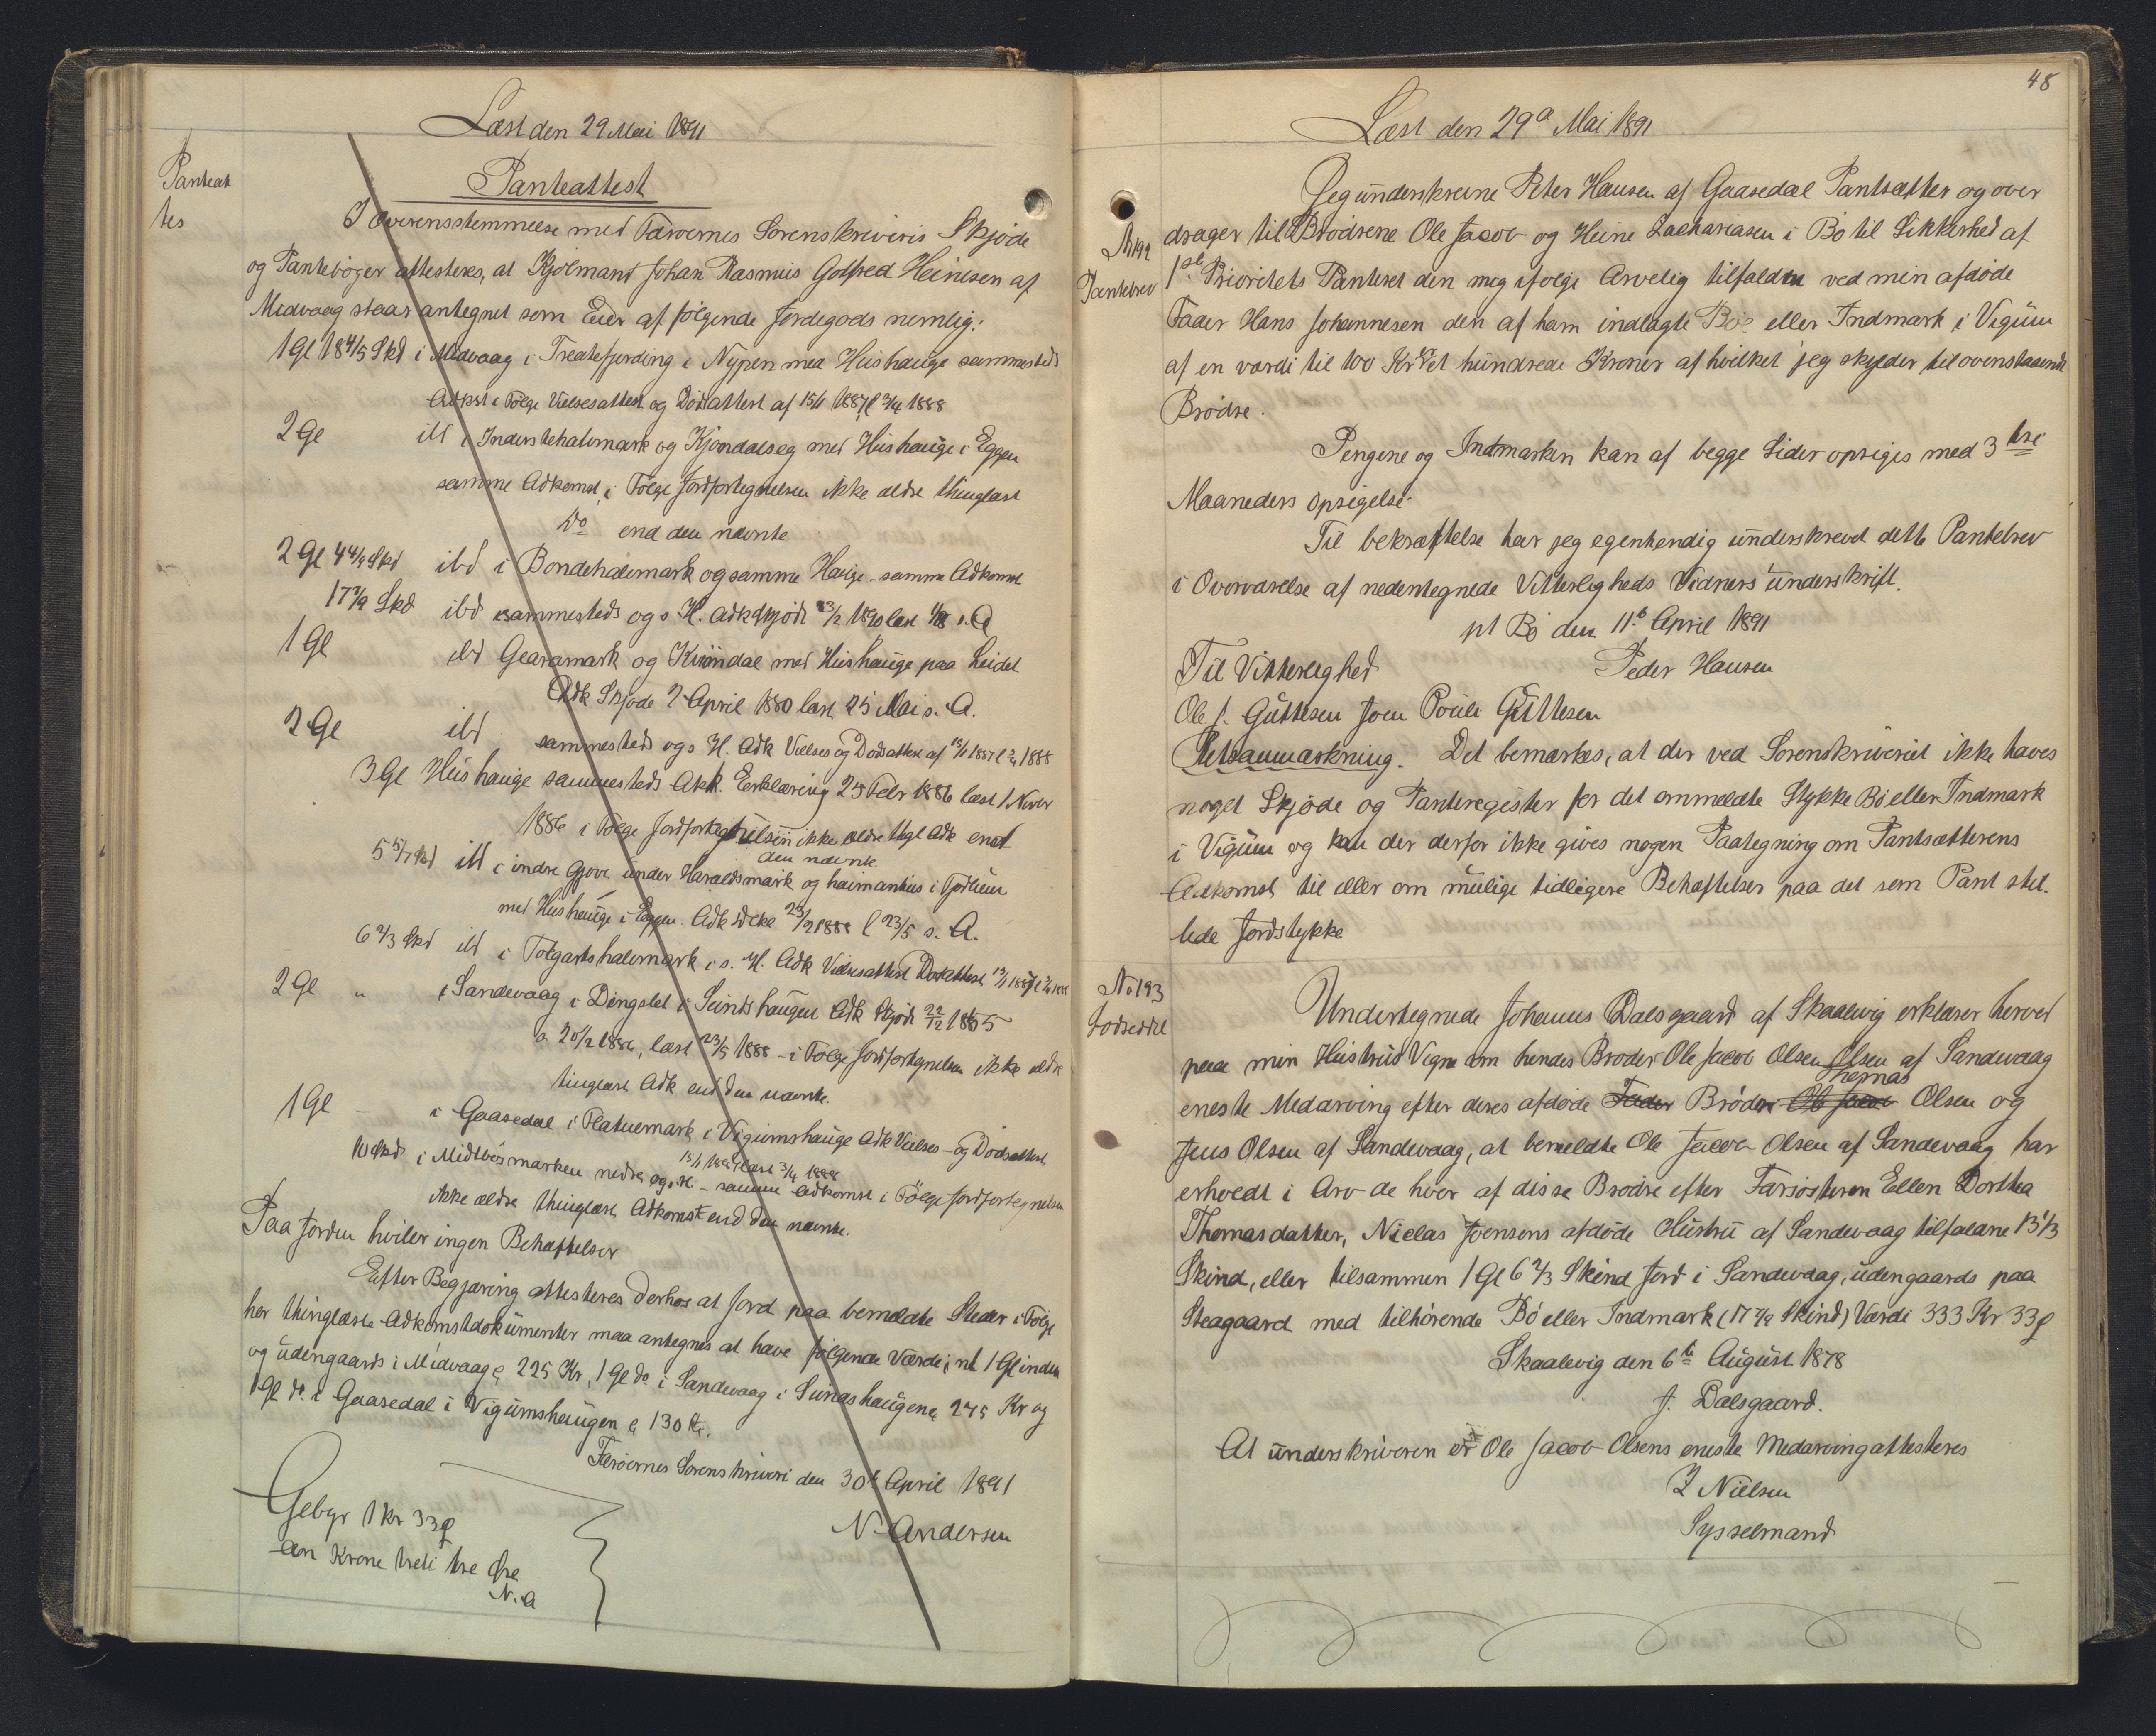 Læst den 29 Mai 1891
Panteat
tes
Panteattest
I Overensstemmelse med Færøernes Sorenskriveris Skjøde
og Pantebøger attesteres, at Kjølmand Johan Rasmus Gotfred Heinesen af
Midvaag staar antegnet som Eier af følgende Jordegods nemlig:
1 Gl 18 4/5 Skd i Midvaag i Treatefjording i Nypen med Hushauge sammesteds
Adkst i Følge Vielsesattest og Dødsattest af 15/1 1887 l 3/4 1888
2 Gl ibd i Inderstehalvmark og Kjøndalseg med Hushauge i Eggen
samme Adkomst, i Følge Jordfortegnelsen ikke ældre thinglæst
Do end den nævnte
2 Gl 4 4/9 Skd ibd i Bondehalvmark og samme Hauge - samme Adkomst
17 7/9 Skd ibd sammesteds og s. H. Adk Skjøde 23/2 1890 læst s. A
1 Gl ibd Gearamark og Kviondal med Hushauge paa Leidet
Adk Skjøde 2 April 1880 læst 25 Mai s. A.
2 Gl ibd sammesteds og s H. Adk Vielses og Dødsattest af 15/1 1887 l 3/4 1888
3 Gl Hushauge sammesteds Adk. Erklæring 25 Febr 1886 læst 1 Novbr
1886 i Følge Jordfortegnelsen ikke ældre thgl Adk end
den nævnte
5 5/7 Skd ibd i indre Gjove under Haraldsmark og haimanhus i Tjørhum
med Hushauge i Eggen. Adk Skøde 23/2 1888 l 23/5 s. A.
6 2/3 Skd ibd i Tolgartshalvmark i s. H. Adk Vielsesattest Dødsattest 15/1 1887 l 3/4 1888
2 Gl " i Sandevaag i Dingslet i Suindshaugen Adk Skjøde 22/12 1885
a 20/2 1886, læst 23/5 1888 - i Følge Jordfortegnelsen ikke ældre
tinglæst Adk end den nævnte.
1 Gl - i Gaasedal i Platuemark i Vigumshauge Adk Vielses- og Dødsattest
15/1 1887 læst 3/4 1888
10 Skd i Midtbøsmarken nedre og s. H. - samme Adkomst i Følge Jordfortegnelsen
ikke ældre thinglæst Adkomst end den nævnte.
Paa Jorden hviler ingen Behæftelser
Efter Begjæring attesteres derhos at Jord paa bemeldte Steder i Følge
her thinglæste Adkomstdokumenter maa antegnes at have følgende Værdi; nl 1 Gl inden
og udengaards i Midvaag a 225 Kr, 1 Gl do i Sandevaag i Suindshaugen a 275 Kr og
1 Gl do i Gaasedal i Vigumshaugen a 130 Kr.
Færøernes Sorenskriveri den 30t April 1891
N. Andersen
Gebyr 1 Kr 33 ø
een Krone treti tre Øre
N. A
48
Læst den 29d Mai 1891
Jeg underskrevne Peter Hansen af Gaasedal Pantsætter og over
No 192
Pantebrev
drager til Brødrene Ole Jacob og Heine Zachariasen i Bø til Sikkerhed af
1ste Prioritets Panteret den mig ifølge Arvelig tilfalden ved min afdøde
Fader Hans Johannesen den af ham indlagte Bø eller Indmark i Vigum
af en værdi til 100 Kr et hundrede Kroner af hvilket jeg skylder til ovenstaaende
Brødre.
Pengene og Indmarken kan af begge Sider opsiges med 3 tre
Maaneders Opsigelse.
Til bekræftelse har jeg egenhendig underskrevd dette Pantebrev
i Overværelse af nedentegnede Vitterligheds Vidners underskrift.
pt Bø den 11te April 1891
Til Vitterlighed Peder Hansen
Ole J. Guttesen Joen Pouli Guttesen
Retsanmærkning. Det bemærkes, at der ved Sorenskriveriet ikke haves
noget Skjøde og Panteregister for det ommeldte Stykke Bø eller Indmark
i Vigum og kan der derfor ikke gives nogen Paategning om Pantsætterens
Adkomst til eller om mulige tidligere Behæftelser paa det som Pant stil.
lede Jordstykke
No 193
Lodseddel
Undertegnede Johannes Dalsgaard af Skaalevig erklærer herved
paa min Hustrus Vegne som hendes Broder Ole Jacob Olsen Olsen af Sandevaag
Thomas
eneste Medarving efter deres afdøde Fader Brødre Ole Jacob Olsen og
Jens Olsen af Sandevaag, at bemeldte Ole Jacob Olsen af Sandevaag har
erhvedt i Arv de hver af disse Brødre efter Farsøsteren Ellen Dorthea
Thomasdatter, Niclas Joensens afdøde Hustru af Sandevaag tilfaldne 13 1/3
Skind, eller tilsammen 1 Gl 6 2/3 Skind Jord i Sandevaag, udengaards paa
Steagaard med tilhørende Bø eller Indmark (17 7/9 Skind) Værdi 333 Kr 33 ø
Skaalevig den 6te August 1878
J. Dalsgaard.
At underskriveren er Ole Jacob Olsens eneste Medarving attesteres
I Nielsen
Sysselmand